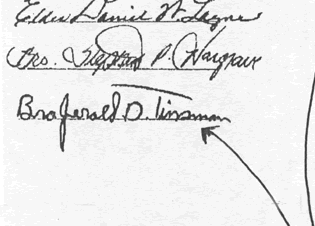 Elder Daniel W. Layne
Bro. Stephen P. Hargrave
Bro Jerald D. Tinsman